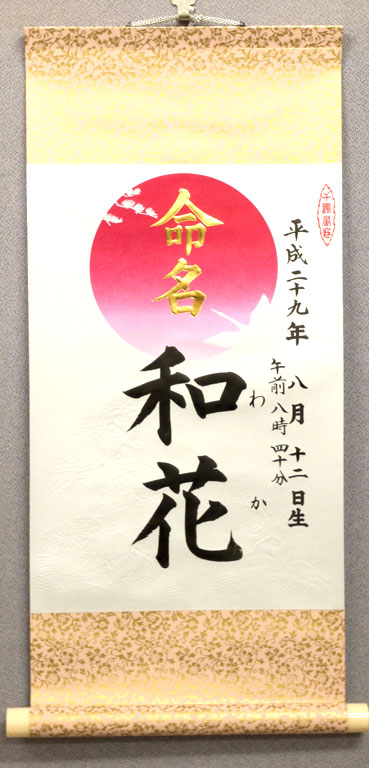 平成二十九年 八月 十二日生
午前八時 四十分
命名
和花
わか